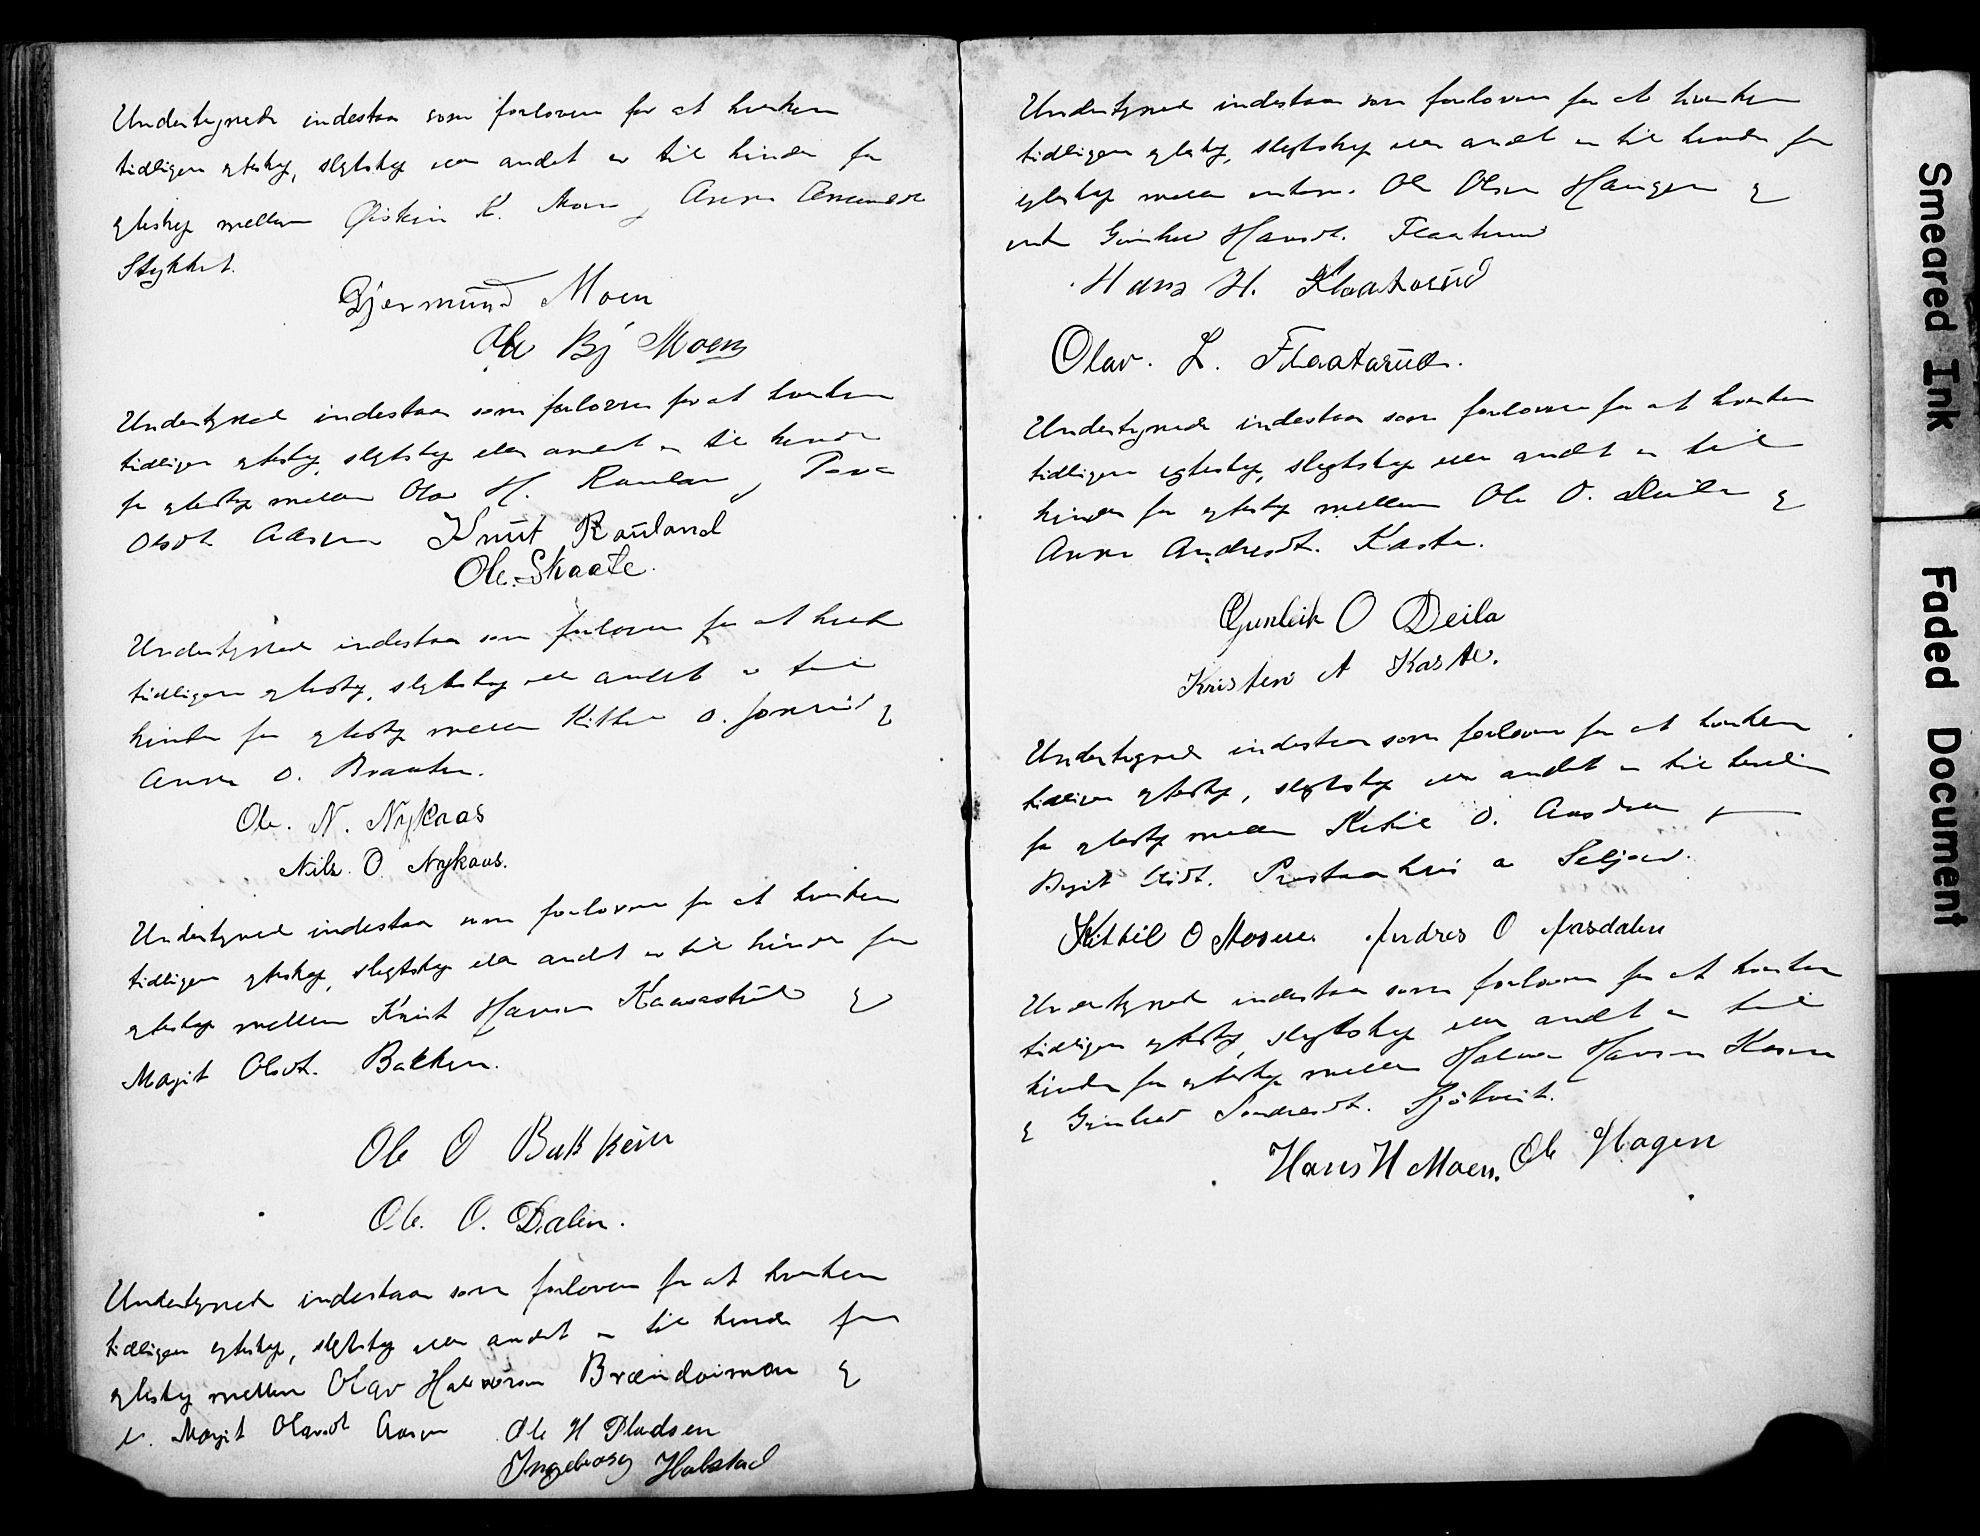 Undertegnede indestaa som forlover for at hverken
tidligere egteskp, slegtskp eller andet er til hinder for
egteskp mellem Øistein K. Moen og Anne Amundsdt
Stykket.
Gjermund Moen
Ole Bj Moen
Undertegnede indestaar som forlover for at hverken
tidligere egteskp, slegtskp eller andet er til hinder
for egteskp mellem Olav H. Rauland og
Olsdt Aasen
Knut Rauland
Ole Skaate.
Undertegnede indestaa som forlover for at hverken
tidligere egteskp, slegtskp eller andet er til
hinder for egteskp mellem Kittil O. Jonsrud og
Anne O. Braaten.
Ole. N. Nykaas
Nils O Nykaas.
Undertegnede indestaa som forlover for at hverken
tidligere egteskp, slegtskp eller andet er til hinder for
egteskp mellem Knut Hansen Kaasastul og
Margit Olsdt. Bakken.
Ole O Bakken
Ole. O. Dalen.
Undertegnede indestaar som forlover for at hverken
tidligere egteskp, slegtskp eller andet er til hinder for
egteskp mellem Olav Halvorsen Brændaimoen og
Margit Olavsdt Aasen
Ole H Pladsen
Ingeborg Halstad
Undertegnede indestaar som forlover for at hverken
tidligere egteskp, slegtskp eller andet er til hinder for
egteskp mellem Ole Olsen Haugen og
Gunhild Hansdt. Flaaterud
Hans H. Flaatarud
Olav. L. Flaatarud.
Undertegnede indestaar som forlover for at hverken
tidligere egteskp, slegtskp eller andet er til
hinder for egteskp mellem Ole O. Deila og
Anne Andresdt. Kaste.
Gunleik O Deila
Kristen A Kaste.
Undertegnede indestaar som forlover for at hverken
tidligere egteskp, slegtskp eller andet er til hinder
for egteskp mellem Ketil O. Aasdalen og
Birgit Prestaahus a Seljord.
Kittil O Mosene Andres O Aasdalen
Undertegnede indestaa som forlover for at hverken
tidligere egteskp, slegtskp eller andet er til
hinder for egteskp mellem Halvor Hansen Kosen
og Gunhild Sondresdt. Sjøtveit.
Hans H Moen. Ole Hagen
Smeared Ink
Faded Document